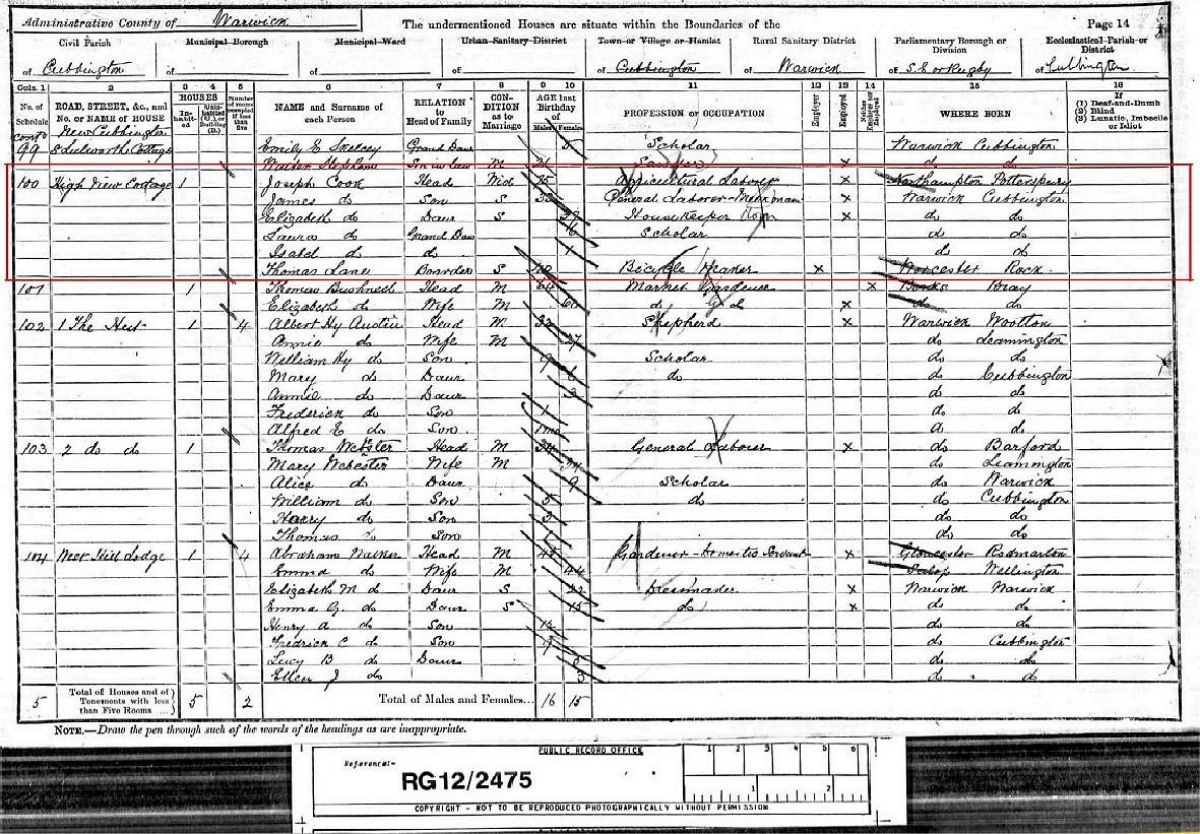 Administrative County of Warwick The undermentioned Houses are situate within the Boundaries of the Page 14
Civil Parish Municipal Borough Municipal Ward Urban Sanitary District Town or Village or Hamlet Rural Sanitary District Parliamentary Borough or Division Ecclesiastical Parish or District
of Cubbington of of of of Cubbington of Warwick of S.E. or Rugby of Cubbington
Cols. 1 2 3 4 5 6 7 8 9 10 11 12 13 14 15 16
No. of Schedule ROAD, STREET, &c., and No. or NAME of HOUSE HOUSES Inhabited Uninhabited (U.), or Building (B.) Number of rooms occupied if less than five NAME and Surname of each Person RELATION to Head of Family CONDITION as to Marriage AGE last Birthday of Males Females PROFESSION or OCCUPATION Employer Employed Neither Employer nor Employed WHERE BORN If (1) Deaf-and-Dumb (2) Blind (3) Lunatic, Imbecile or Idiot
contd New Cubbington
99 Cottage Emily E Grand Daur 5 Scholar Warwick Cubbington
Walter Son in law M x do do
100 High View Cottage 1 Joseph Cook Head Wid 75 Agricultural Laborer x Northampton Potterspury
James do Son S General Laborer x Warwick Cubbington
Elizabeth do Daur S Housekeeper Dom x do do
Laura do Grand Daur 6 Scholar do do
Isabel do do 1 do do
Thomas Lane Boarder S Bicycle Maker x Worcester Rock
101 1 Thomas Bushnell Head M 64 Market Gardener x Berks Bray
Elizabeth do Wife M 60 do x do
102 1 The Hut 1 4 Albert Hy Austin Head M Shepherd x Warwick Wootton
Annie do Wife M 27 do Leamington
William Hy do Son 9 Scholar do do
Mary do Daur 6 do do Cubbington
Annie do Daur 3 do do
Frederick do Son 1 do do
Alfred E do Son do do
103 2 do do 1 Thomas Webster Head M 34 General Labourer x do Barford
Mary Webester Wife M 34 do Leamington
Alice do Daur 9 Scholar do Warwick
William do Son 5 do do Cubbington
Harry do Son 3 do do
Thomas do Son 1 do do
104 Lodge 1 4 Abraham Head M Gardener - Domestic Servant x Gloucester Rodmarton
Emma do Wife M 44 Salop Wellington
Elizabeth M do Daur S 22 Dressmaker x Warwick Warwick
Emma G do Daur S 15 do x do do
Henry A do Son 12 do do
Fredrick C do Son 9 do Cubbington
Lucy B do Daur 5 do do
Ellen J do 3 do do
5 Total of Houses and of Tenements with less than Five Rooms ... 5 2 Total of Males and Females... 16 15
NOTE.—Draw the pen through such of the words of the headings as are inappropriate.
PUBLIC RECORD OFFICE 1 2 3 4 5 6
Reference:-
RG12/2475 1 2
COPYRIGHT - NOT TO BE REPRODUCED PHOTOGRAPHICALLY WITHOUT PERMISSION